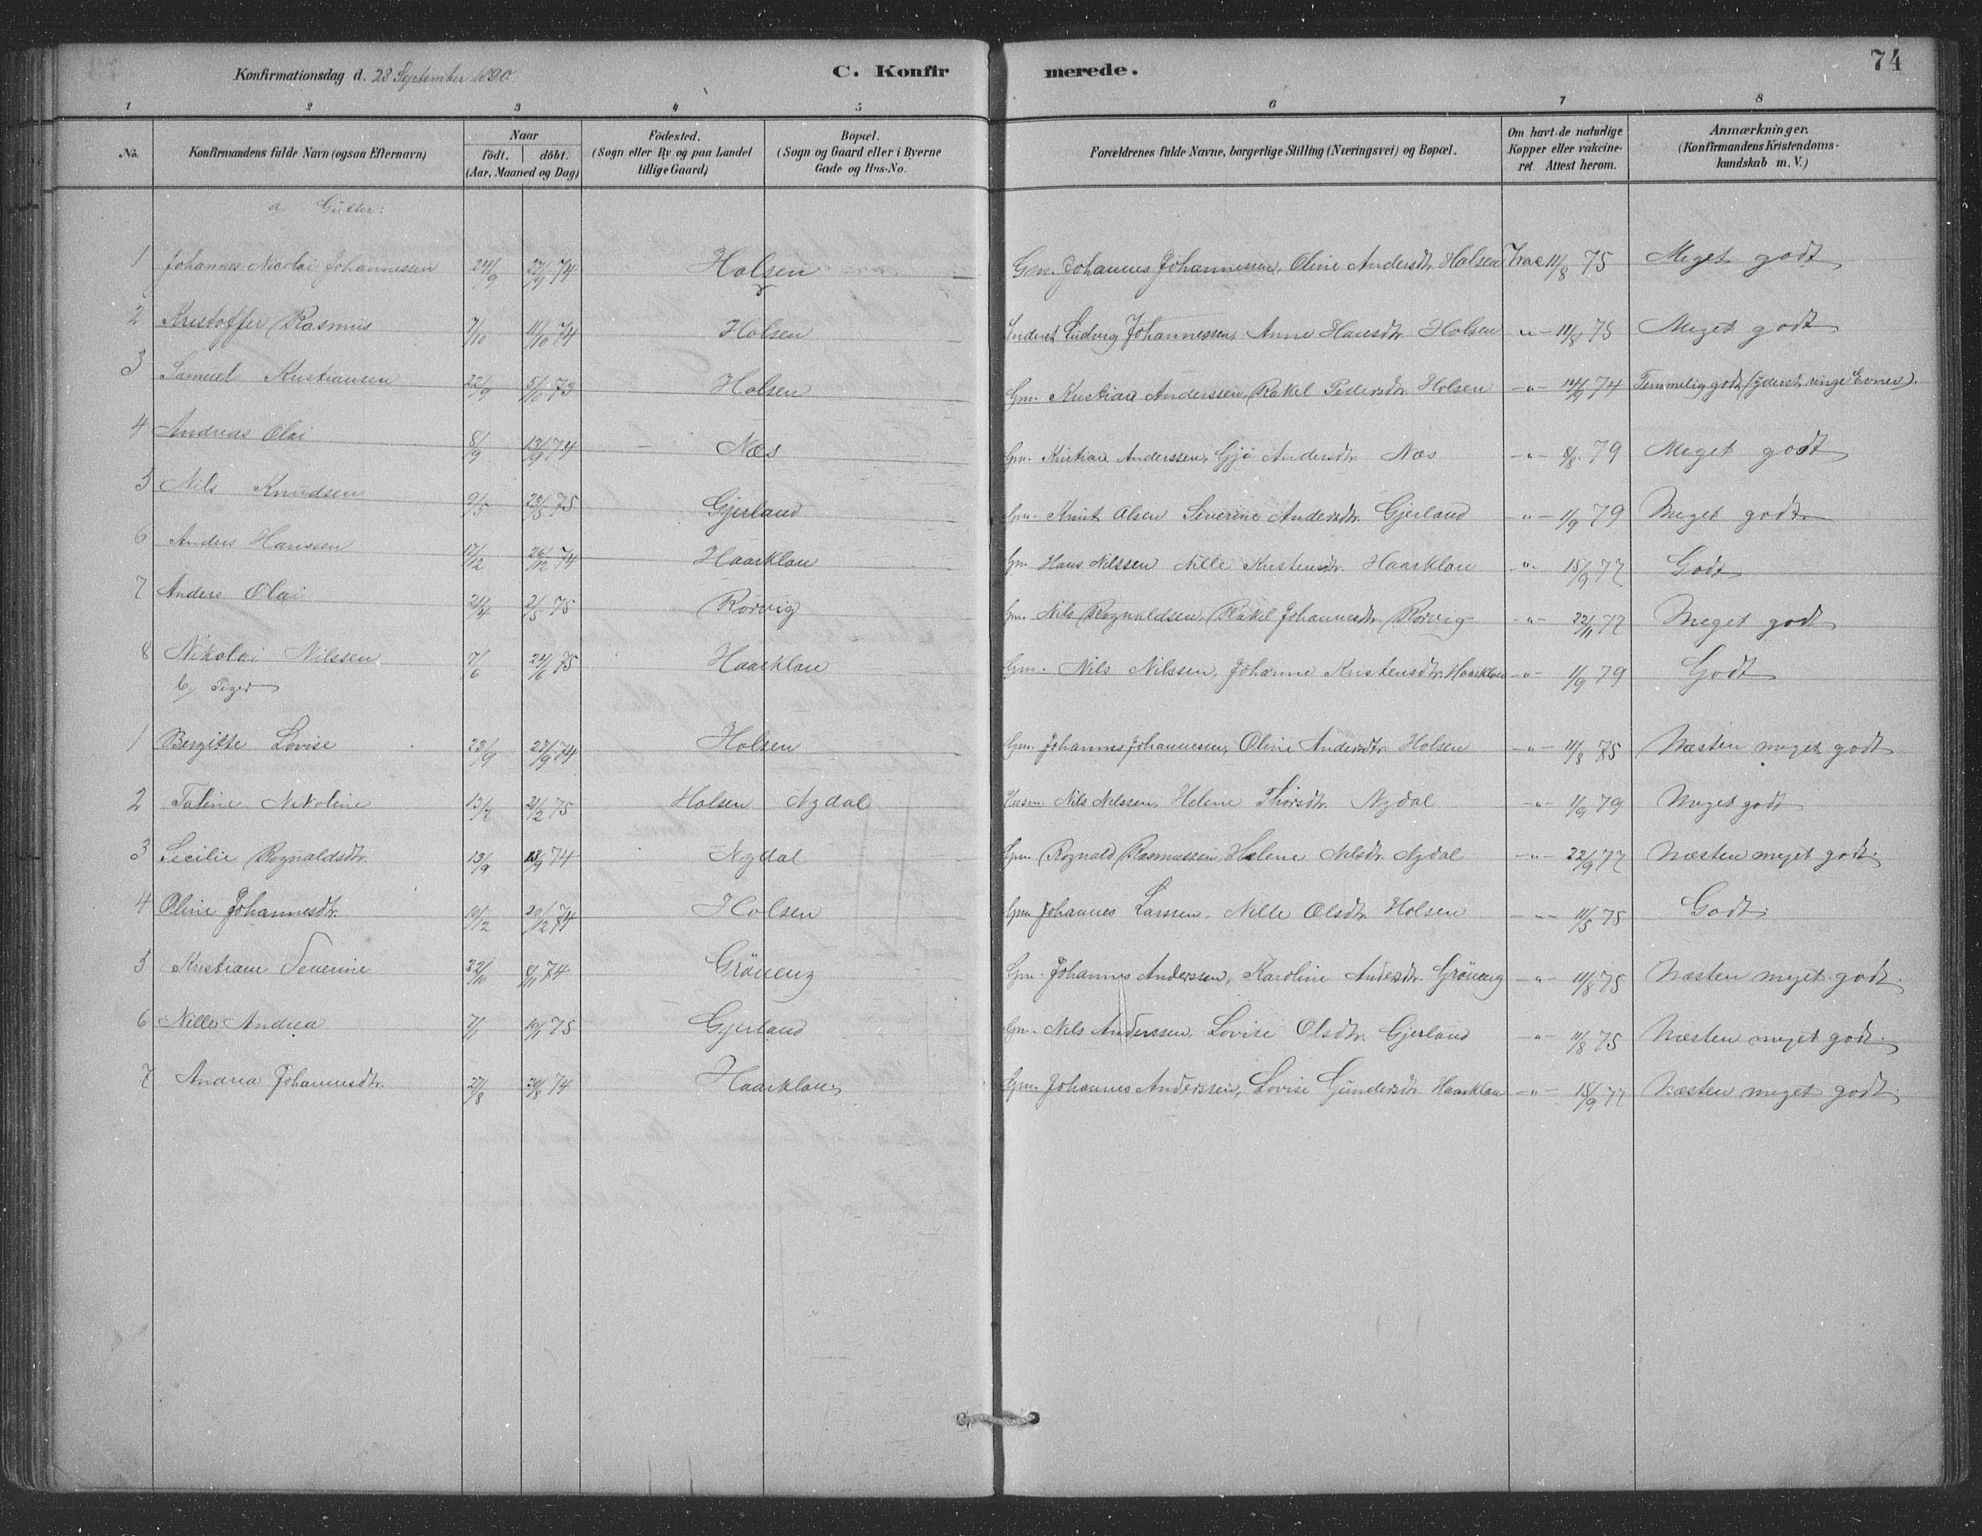 74
Konfirmationsdag d. 28 September 1890. C. Konfirmerede.
1 2 3 4 5 6 7 8
No. Konfirmandens fulde Navn (ogsaa Efternavn) Naar födt. döbt. (Aar, Maaned og Dag) Födested. (Sogn eller By og paa Landet tillige Gaard) Bopæl. (Sogn og Gaard eller i Byerne Gade og Hus-No. Forældrenes fulde Navne, borgerlige Stilling (Næringsvei) og Bopæl. Om havt de naturlige Kopper eller vakcineret. Attest herom. Anmærkninger. (Konfirmandens Kristendomskundskab m. V.)
a Gutter:
1 Johannes Nicolai Johannessen 24/9 27/9 74 Holsen Gm. Johannes Johannessen, Oline Andersdtr. Holsen Vac 11/8 75 Meget godt
2 Kristoffer Rasmus 7/10 11/10 74 Holsen Inderst Ludvig Johannessen, Anne Hansdtr. Holsen -"- 11/8 75 Meget godt
3 Samuel Kristiansen 22/9 5/10 73 Holsen Gm. Kristian Anderssen, Rakel Pedersdtr. Holsen -"- 14/9 74 Temmelig godt (yderst ringe Evner).
4 Andreas Olai 8/9 13/9 74 Næs Gm. Kristian Anderssen, Gjø Andersdtr. Næs -"- 8/8 79 Meget godt
5 Nils Knudsen 9/5 23/5 75 Gjerland Gm. Knut Olsen Severine Andersdtr. Gjerland -"- 1/9 79 Meget godt
6 Anders Hanssen 17/12 26/12 74 Haarklau Gm. Hans Nilssen Nille Kristensdtr. Haarklau -"- 15/9 77 Godt
7 Anders Olai 21/4 2/5 75 Rörvig Gm. Nils Rognaldsen, Rakel Johannesdtr. Rörvig -"- 22/11 77 Meget godt
8 Nikolai Nilssen 7/6 24/6 75 Haarklau Gm. Nils Nilssen, Johanne Kristensdtr. Haarklau -"- 1/9 79 Godt
b/ Piger
1 Bergitte Lovise 23/9 27/9 74 Holsen Gm. Johannes Johannessen, Oline Andersdtr. Holsen -"- 11/8 75 Næsten meget godt
2 Taline Nikoline 13/2 21/2 75 Holsen Nydal Husm. Nils Nilssen, Helene Thorsdtr. Nydal -"- 1/9 79 Meget godt
3 Secilie Rognaldsdtr. 13/9 13/9 74 Nydal Gm. Rognald Rasmussen, Helene Nilsdtr. Nydal -"- 22/9 77 Næsten meget godt.
4 Oline Johannesdtr. 10/12 20/12 74 Holsen Gm. Johannes Larssen, Nille Olsdtr. Holsen -"- 11/5 75 Godt.
5 Kristiane Severine 22/10 /11 74 Gröneng Gm. Johannes Anderssen, Karoline Andersdtr. Gröneng -"- 11/8 75 Næsten meget godt.
6 Nille Andrea 7/1 10/1 75 Gjerland Gm. Nils Anderssen, Lovise Olsdtr. Gjerland -"- 11/8 75 Næsten meget godt.
7 Andrea Johannesdtr. 27/8 30/8 74 Haarklau Gm. Johannes Anderssen, Lovise Gundersdtr. Haarklau -"- 15/9 77 Næsten meget godt.